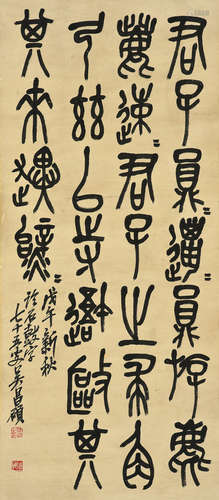 君子員邋員斿麀
鹿速君子之求角
弓茲以寺敺其
其來
戊午新秋
石鼓字
七十五叟吳昌碩